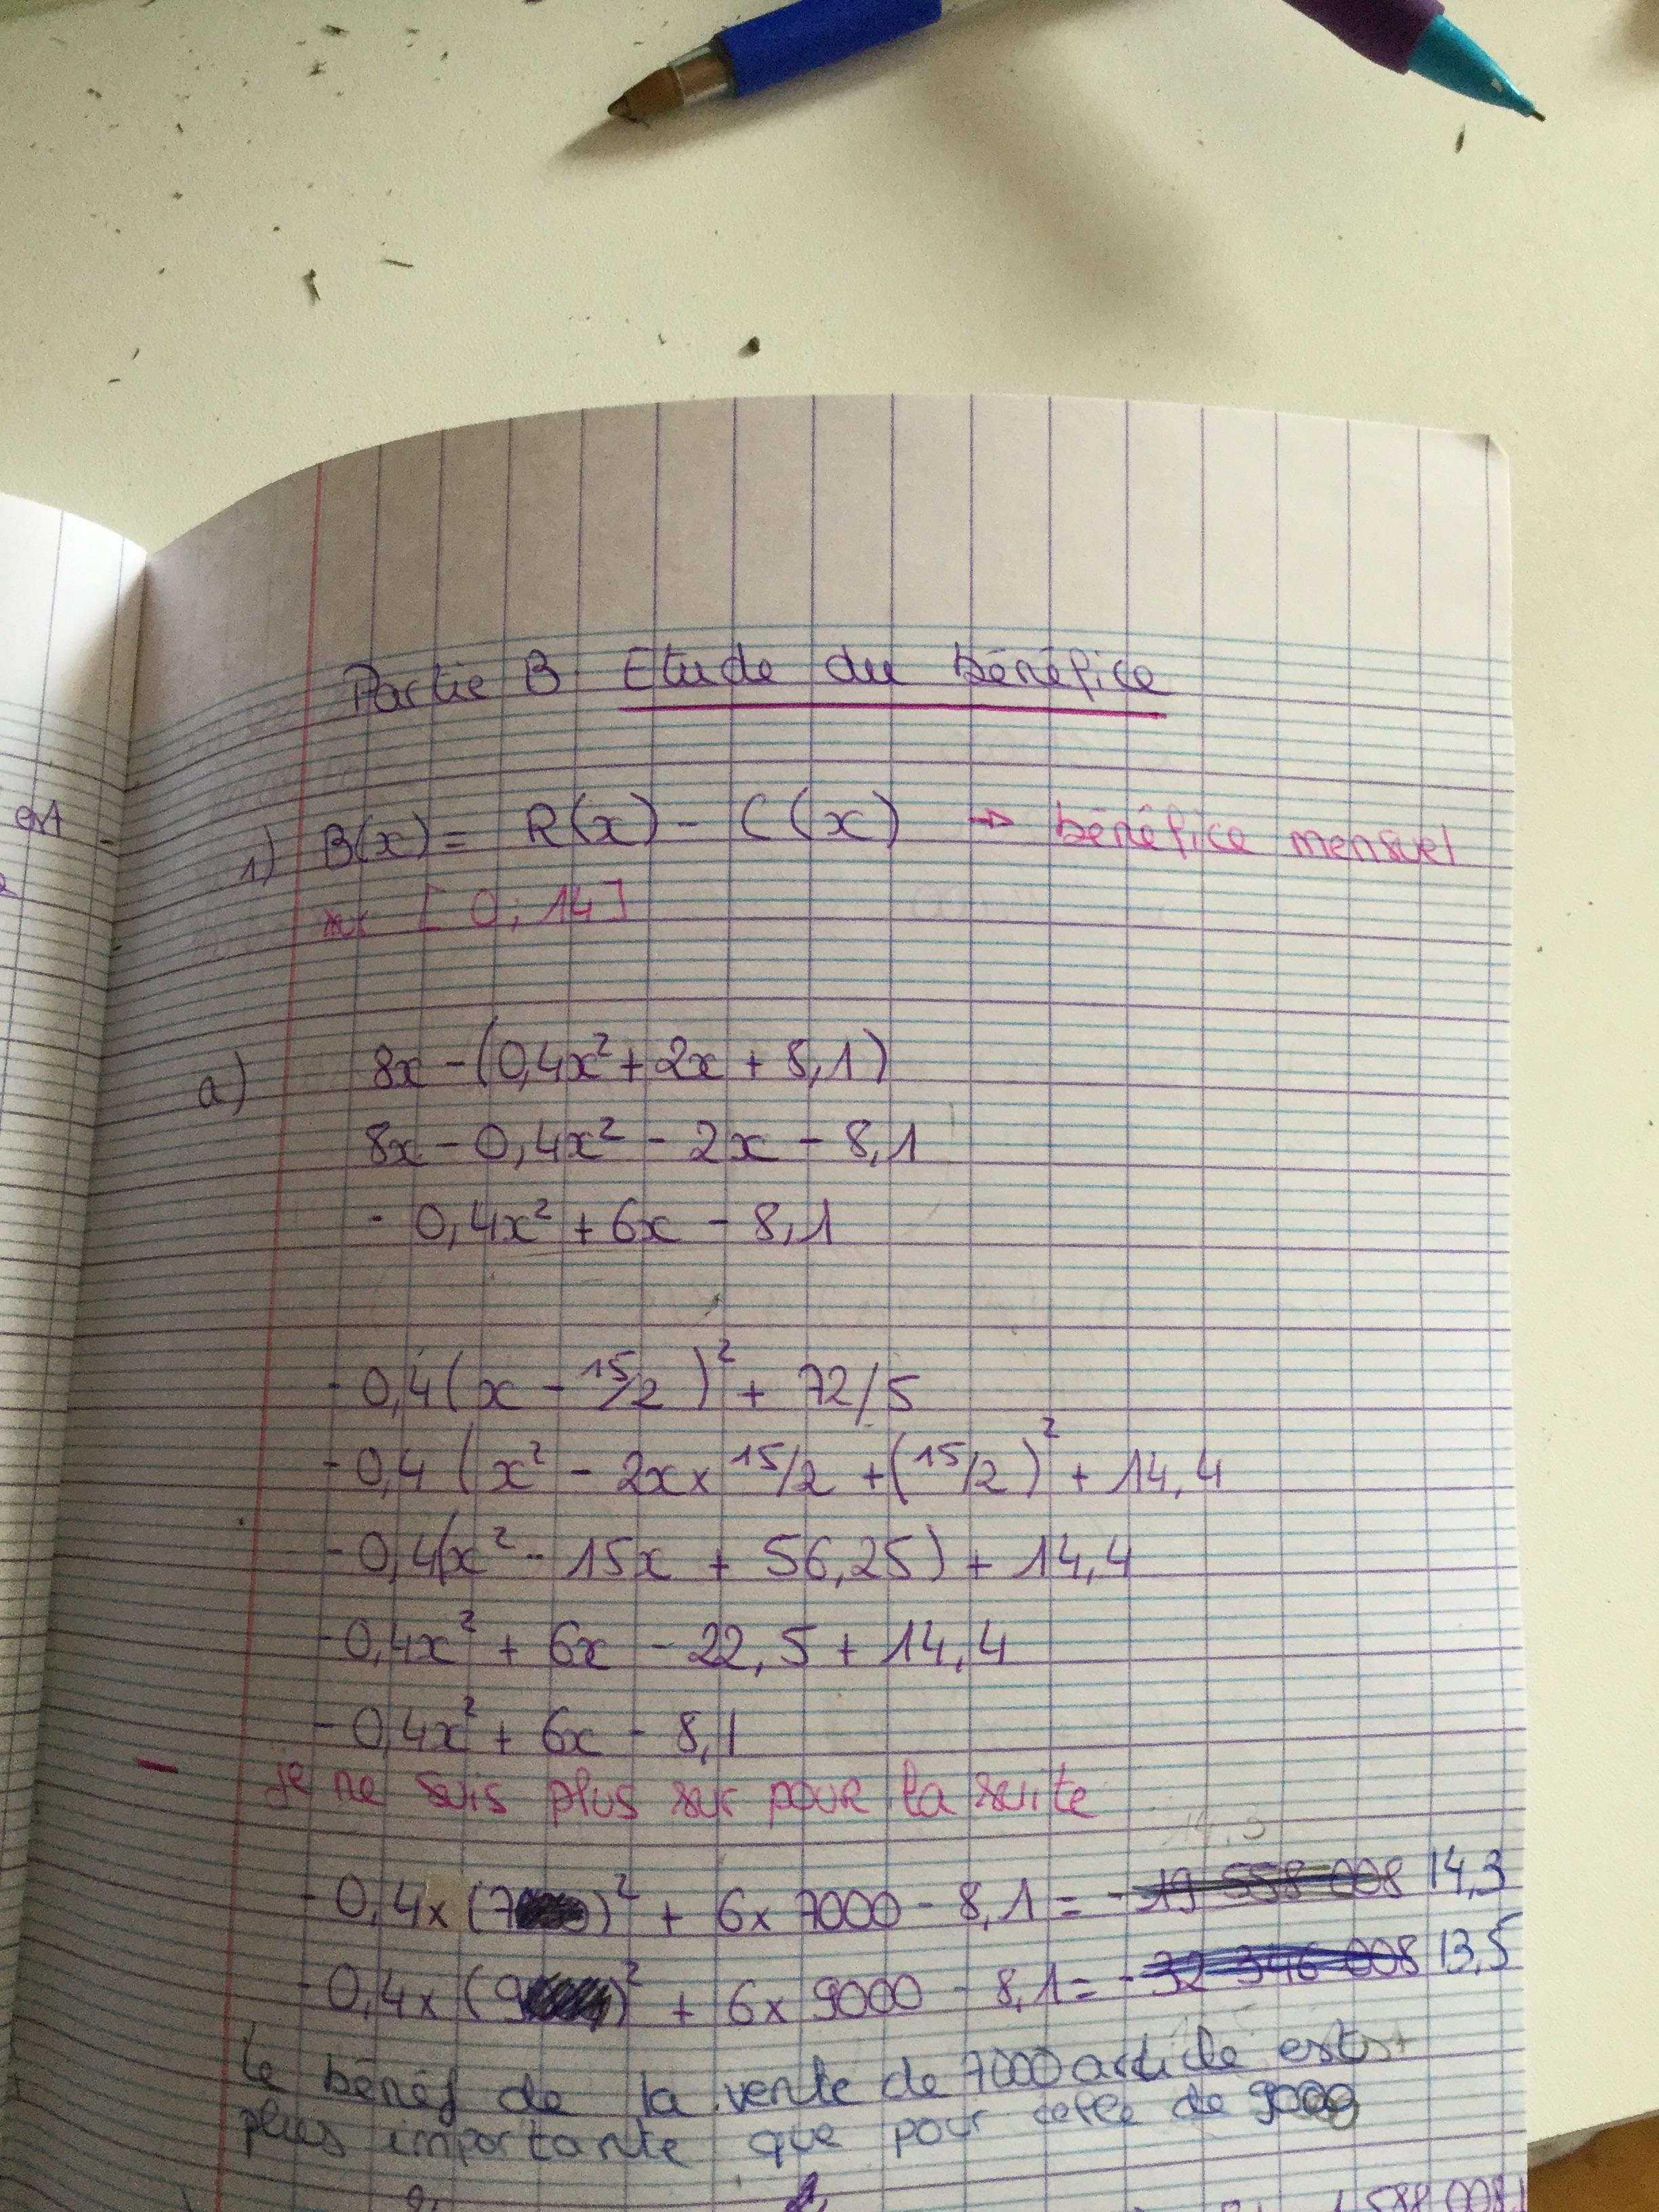 Partie B Etude du bénéfice
1) B(x) = R(x) - C(x) → bénéfice mensuel
sur [0; 14]
a) 8x - (0,4x² + 2x + 8,1)
8x - 0,4x² - 2x - 8,1
- 0,4x² + 6x - 8,1
- 0,4(x - 15/2)² + 72/5
- 0,4 (x² - 2x × 15/2 + (15/2)² + 14,4
- 0,4(x² - 15x + 56,25) + 14,4
- 0,4x² + 6x - 22,5 + 14,4
- 0,4x² + 6x - 8,1
- je ne suis plus sur pour la suite
- 0,4 × (7)² + 6 × 7000 - 8,1 = - 19 558 008 14,3
- 0,4 × (9)² + 6 × 9000 - 8,1 = - 32 346 008 13,5
Le bénéf de la vente de 7000 article est
plus importante que pour celle de 9000
588 008,1
ert